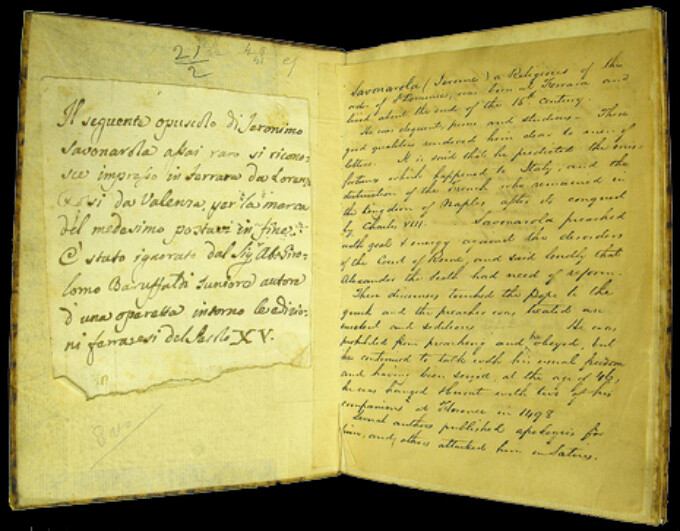 21
2
Il seguente opuscolo di Jeronimo
Savonarola assai raro si ricono-
sce impresso in Ferrara da Loren
Rossi da Valenza, per la marca
del medesimo postavi in fine.
E' stato ignorato dal Sig. Ab. Giro-
lomo Baruffaldi Juniore autore
d'una operetta intorno le edizio-
ni ferraresi del Secolo XV.
Savonarola (Jerome) a Religious of the
order of St Dominic, was born at Ferrara and
lived about the end of the 15th Century.
He was eloquent, pious, and studious. These
good qualities rendered him dear to men of
letters. It is said that he predicted the mis-
fortunes which happened to Italy, and the
destruction of the French who remained in
the Kingdom of Naples after its conquest
by Charles VIII. Savonarola preached
with zeal & energy against the disorders
of the Court of Rome, and said loudly that
Alexander the Sixth had need of reform.
These discourses touched the Pope to the
quick and the preacher was treated as
insolent and seditious. He was
prohibited from preaching and he obeyed, but
he continued to talk with his usual freedom
and having been seized, at the age of 46,
he was hanged & burnt with two of his
companions at Florence in 1498
Several authors published apologies for
him, and others attacked him in Satires.